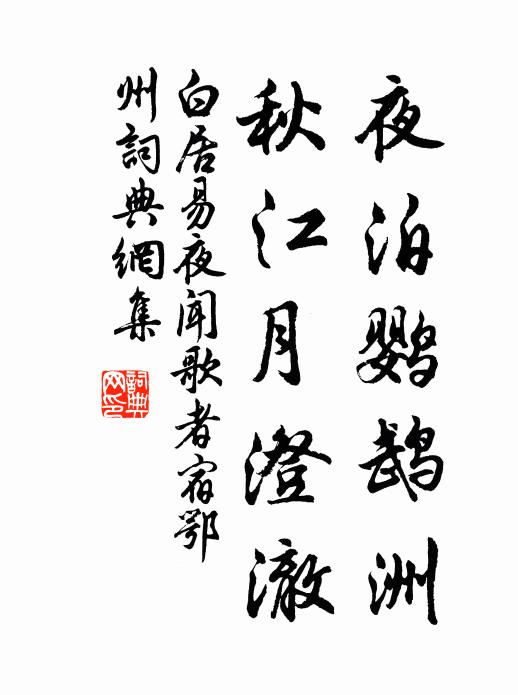 夜泊鹦鹉洲
秋江月澄澈
白居易夜闻歌者宿鄂
州詞典網集
詞典
网印